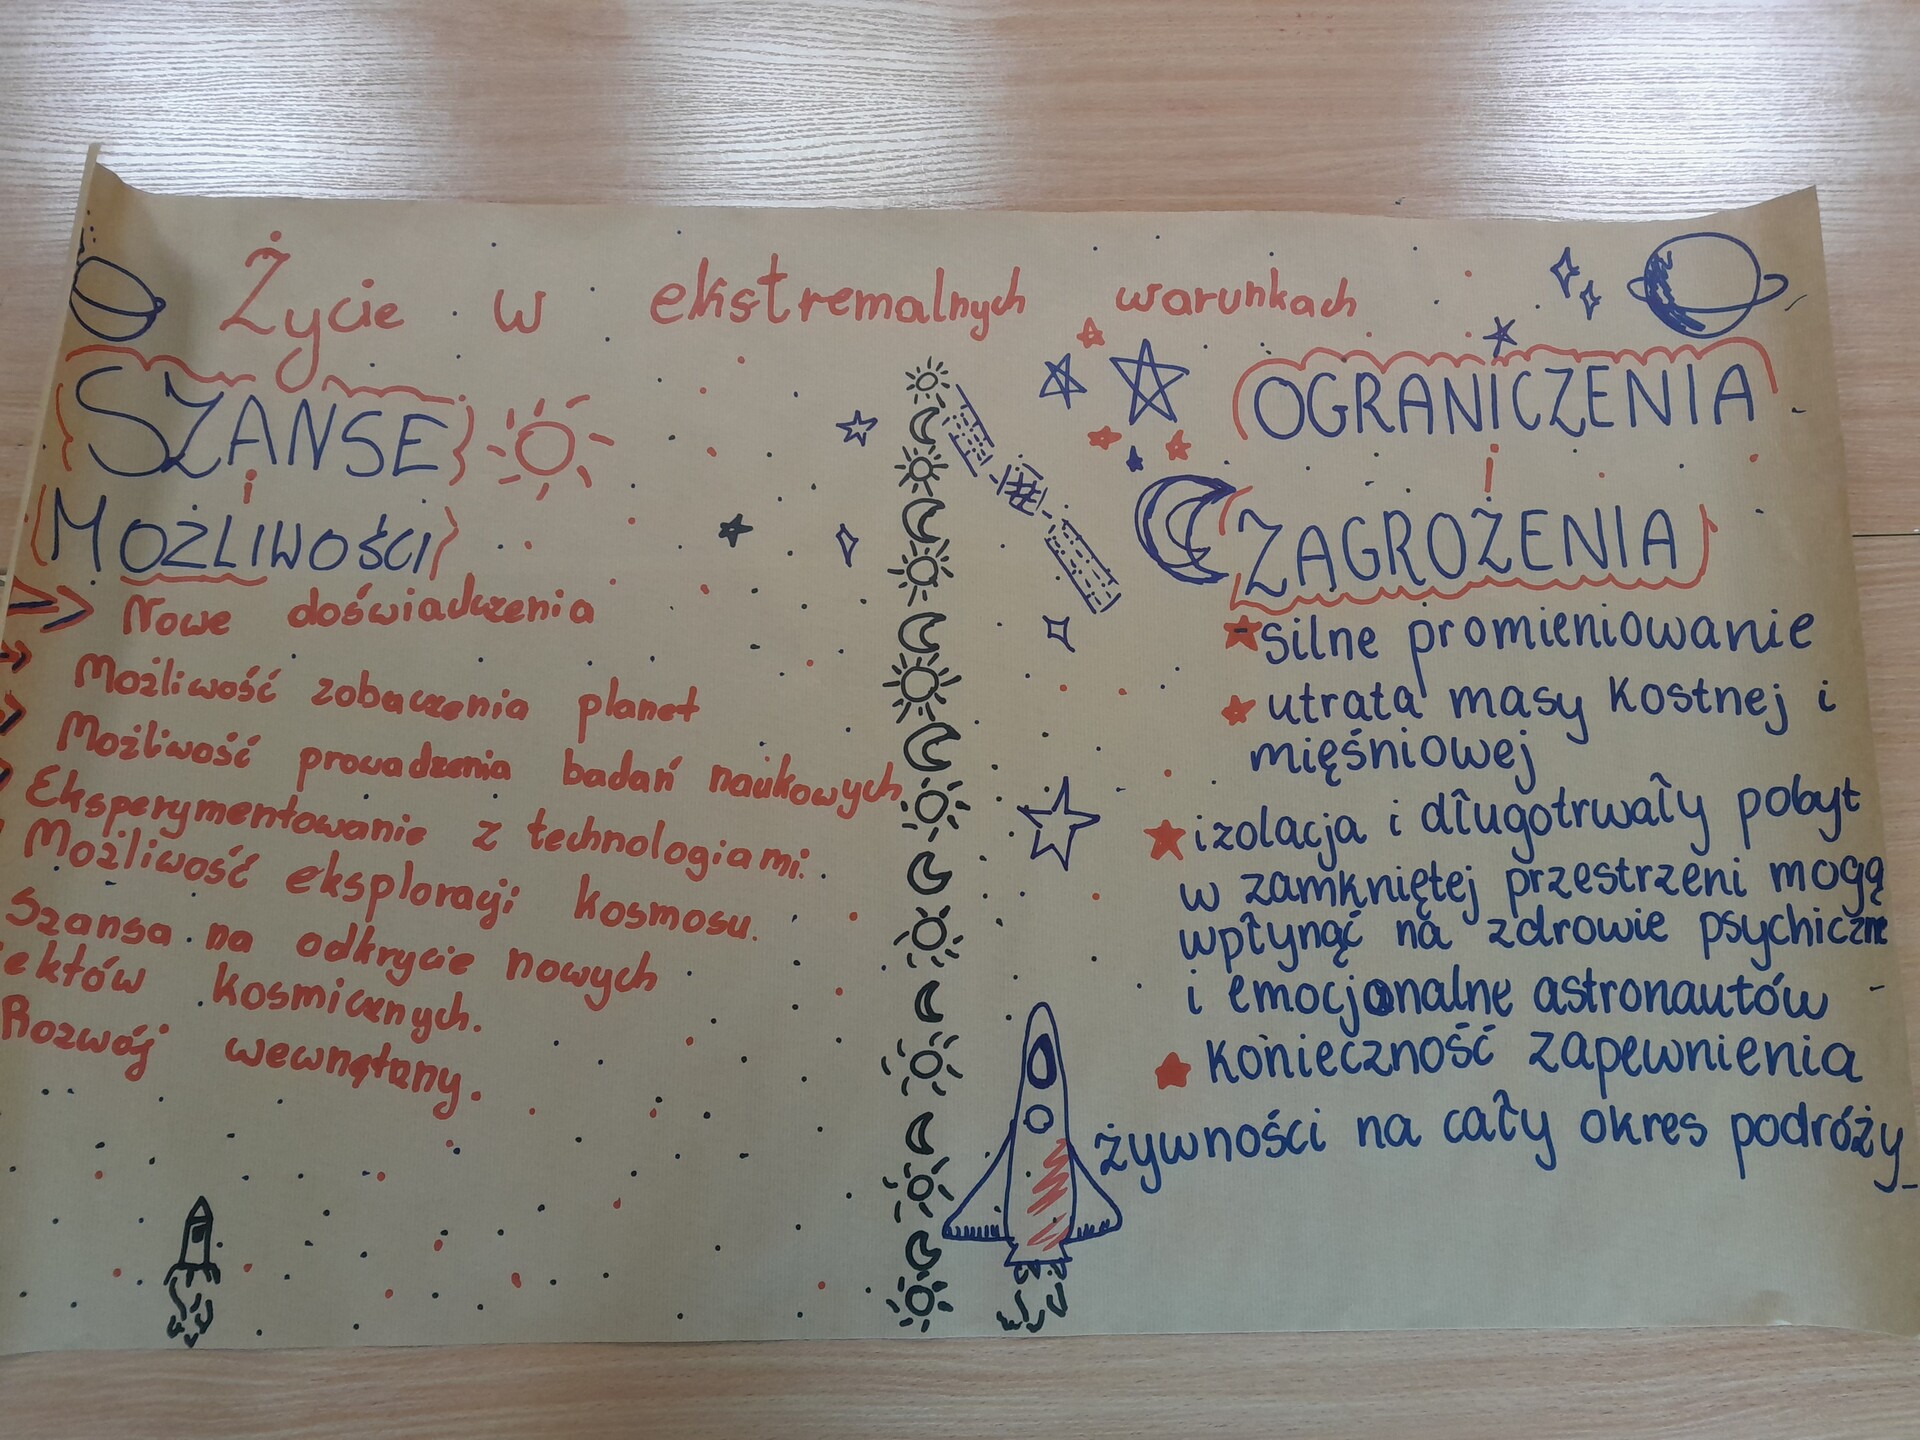 Życie w ekstremalnych warunkach
SZANSE
i
MOŻLIWOŚCI
Nowe doświadczenia
Możliwość zobaczenia planet
Możliwość prowadzenia badań naukowych
Eksperymentowanie z technologiami.
Możliwość eksploracji kosmosu.
Szansa na odkrycie nowych
ektów kosmicznych.
Rozwój wewnętrzny.
OGRANICZENIA
i
ZAGROŻENIA
-silne promieniowanie
utrata masy kostnej i
mięśniowej
izolacja i długotrwały pobyt
w zamkniętej przestrzeni mogą
wpłynąć na zdrowie psychiczne
i emocjonalne astronautów
konieczność zapewnienia
żywności na cały okres podróży